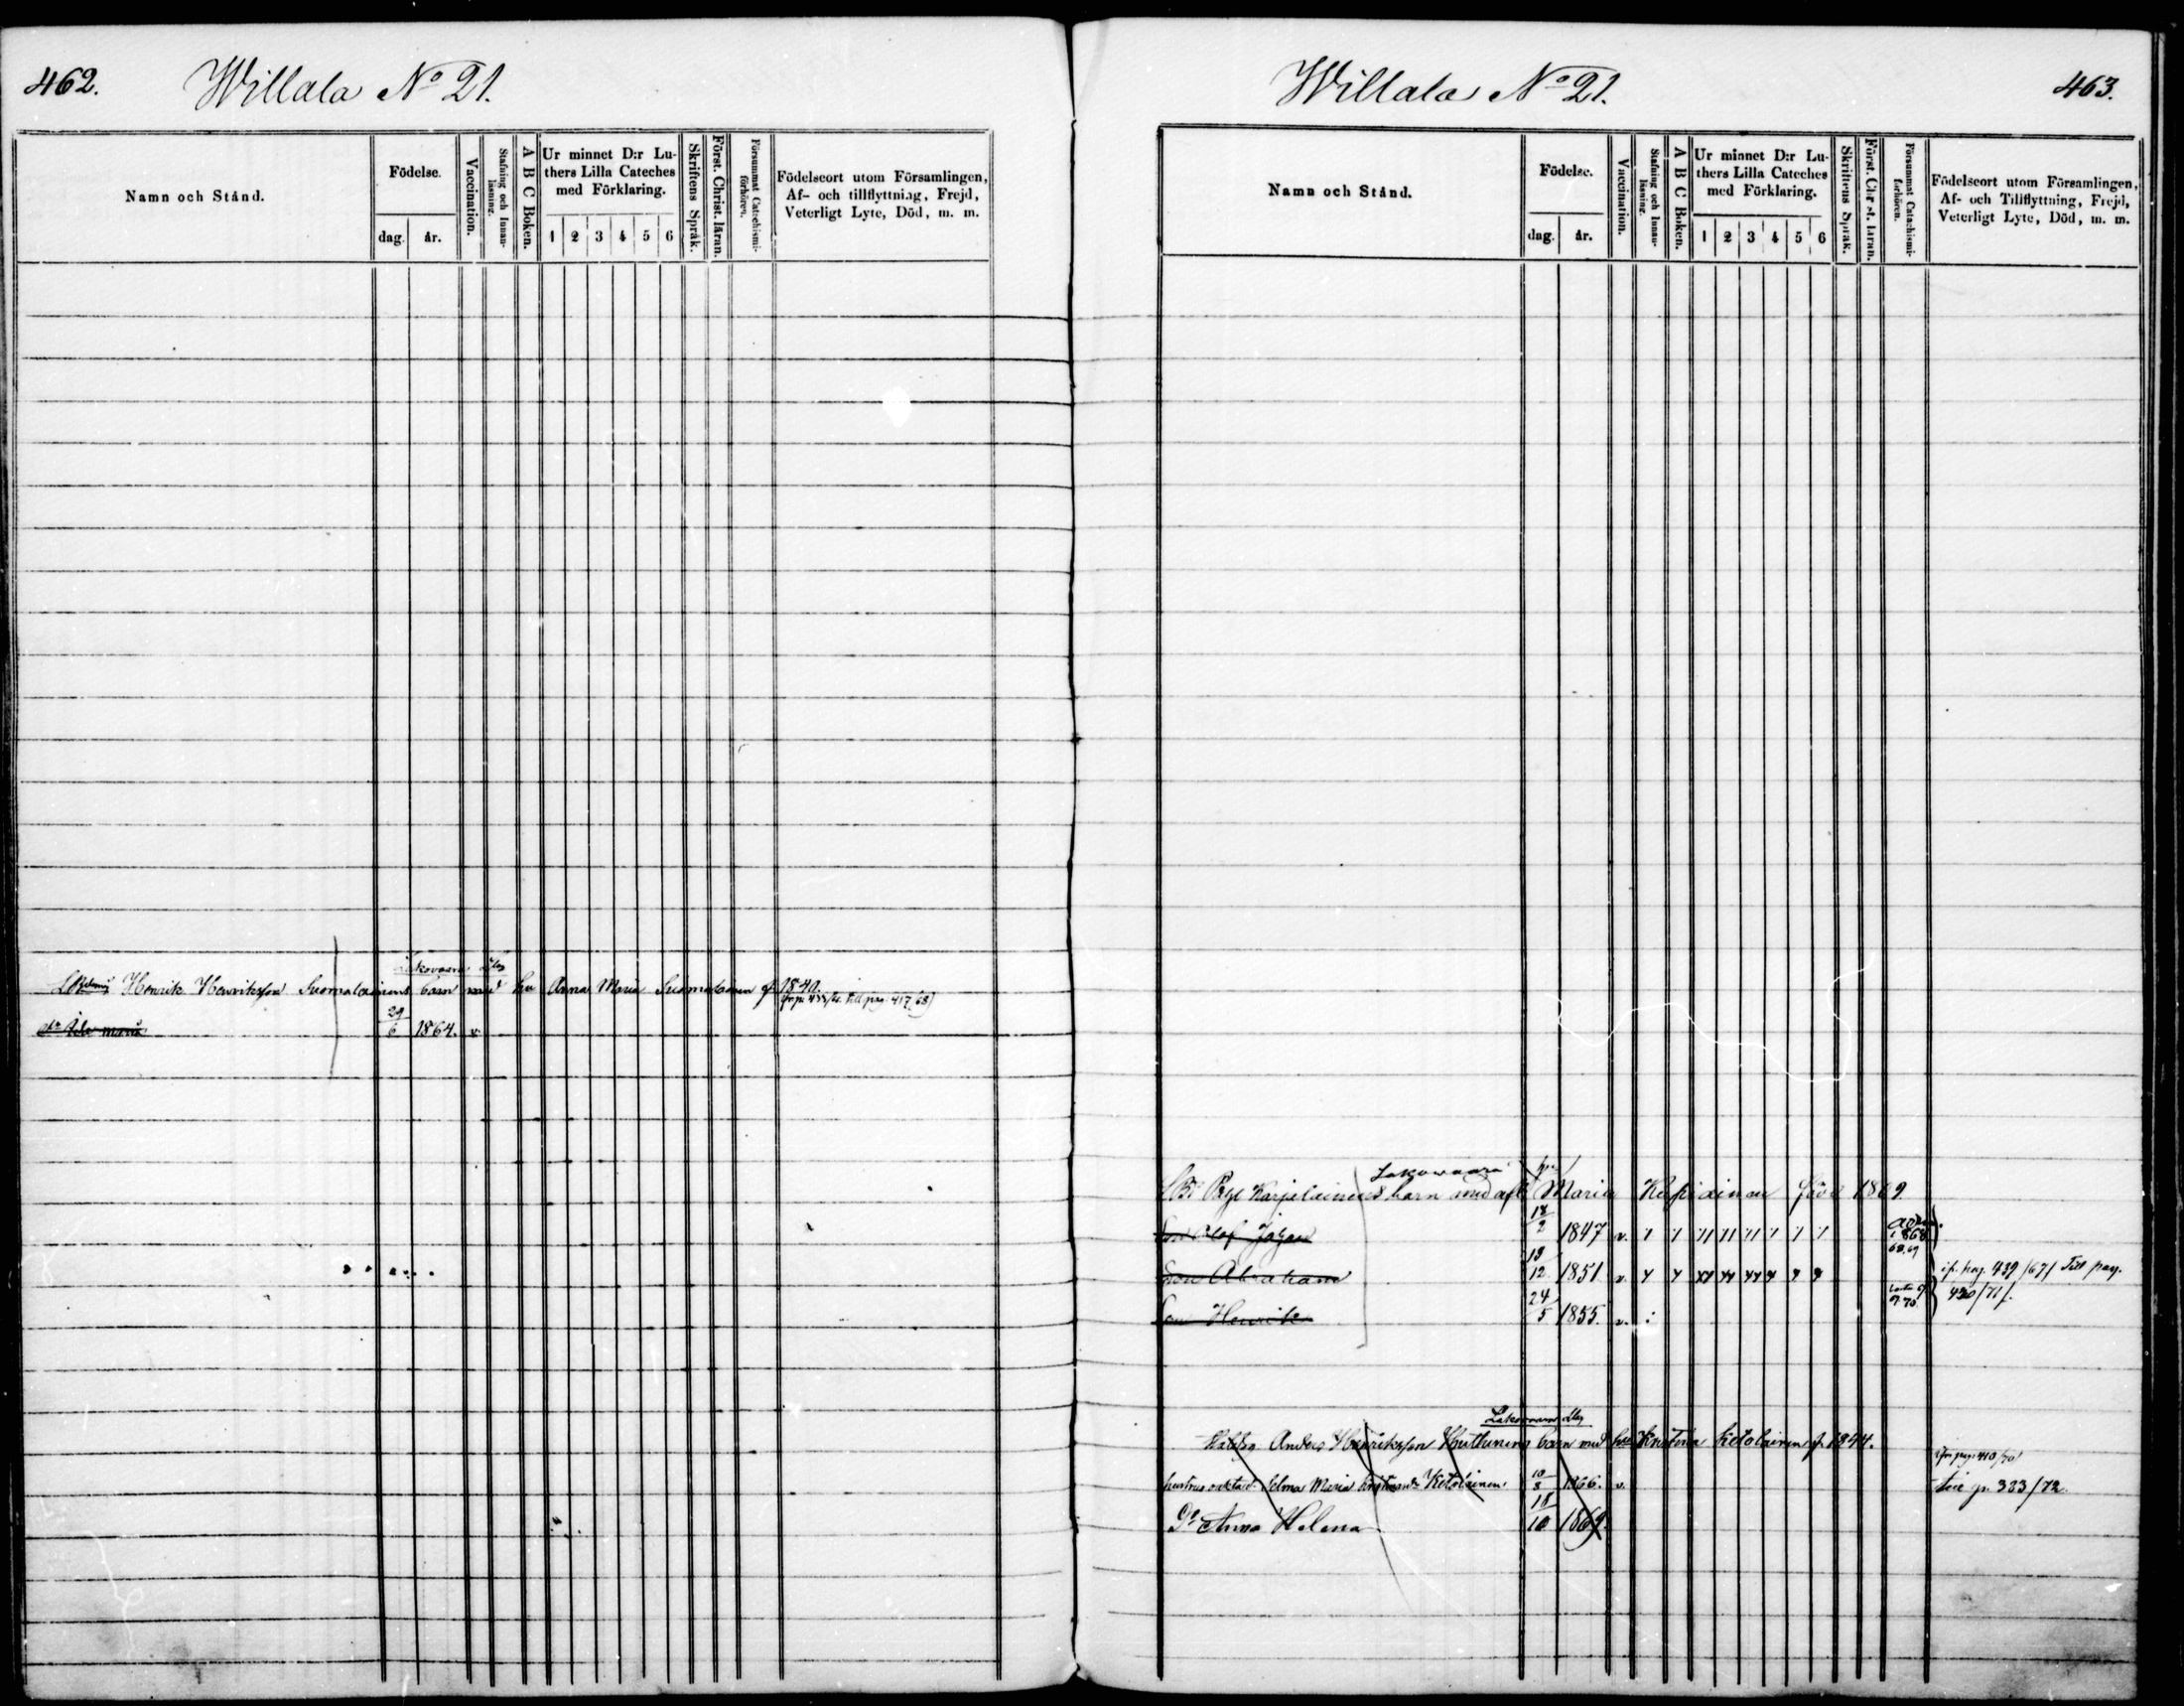 462. Willala No 21.
Namn och Stånd.
Födelse.
dag. år.
Vaccination.
Stafning och Innan-läsning.
A B C Boken.
Ur minnet D:r Lu-
thers Lilla Cateches
med Förklaring.
1 2 3 4 5 6
Skriftens Språk.
Först. Christ. läran.
Försummat Catechismi-förhören.
Födelseort utom Församlingen,
Af- och tillflyttning, Frejd,
Veterligt Lyte, Död, m. m.
Henrik Henriksson Suomalainens barn med hu Anna Maria Suomalainen f. 1840.
till pag. 417/68)
maria 29/6 1864. v.
Willala No 21. 463.
Namn och Stånd.
Födelse.
dag. år.
Vaccination.
Stafning och Innan-läsning.
A B C Boken.
Ur minnet D:r Lu-
thers Lilla Cateches
med Förklaring.
1 2 3 4 5 6
Skriftens Språk.
Först. Christ. läran.
Försummat Catechismi-förhören.
Födelseort utom Församlingen,
Af- och Tillflyttning, Frejd,
Veterligt Lyte, Död, m. m.
Lakowaara
Karjalainens barn med afl. Maria född 1809
Son Olof Johan 18/2 1847 v.
1868
68.69
Son Abraham 13/12 1851 v.
pag. 439/67/ Till pag.
420/71/.
Son Henrik 24/5 1855. v.
Lakowaara
Anders Henriksson Huttunens barn med hu Kristina Ketolainen f. 1844.
pag. 410/70
hustrus oäkta d. Selma Maria Ketolainen 10/8 1866. v.
p. 383/72
Do Anna Helena 18/10 1869.